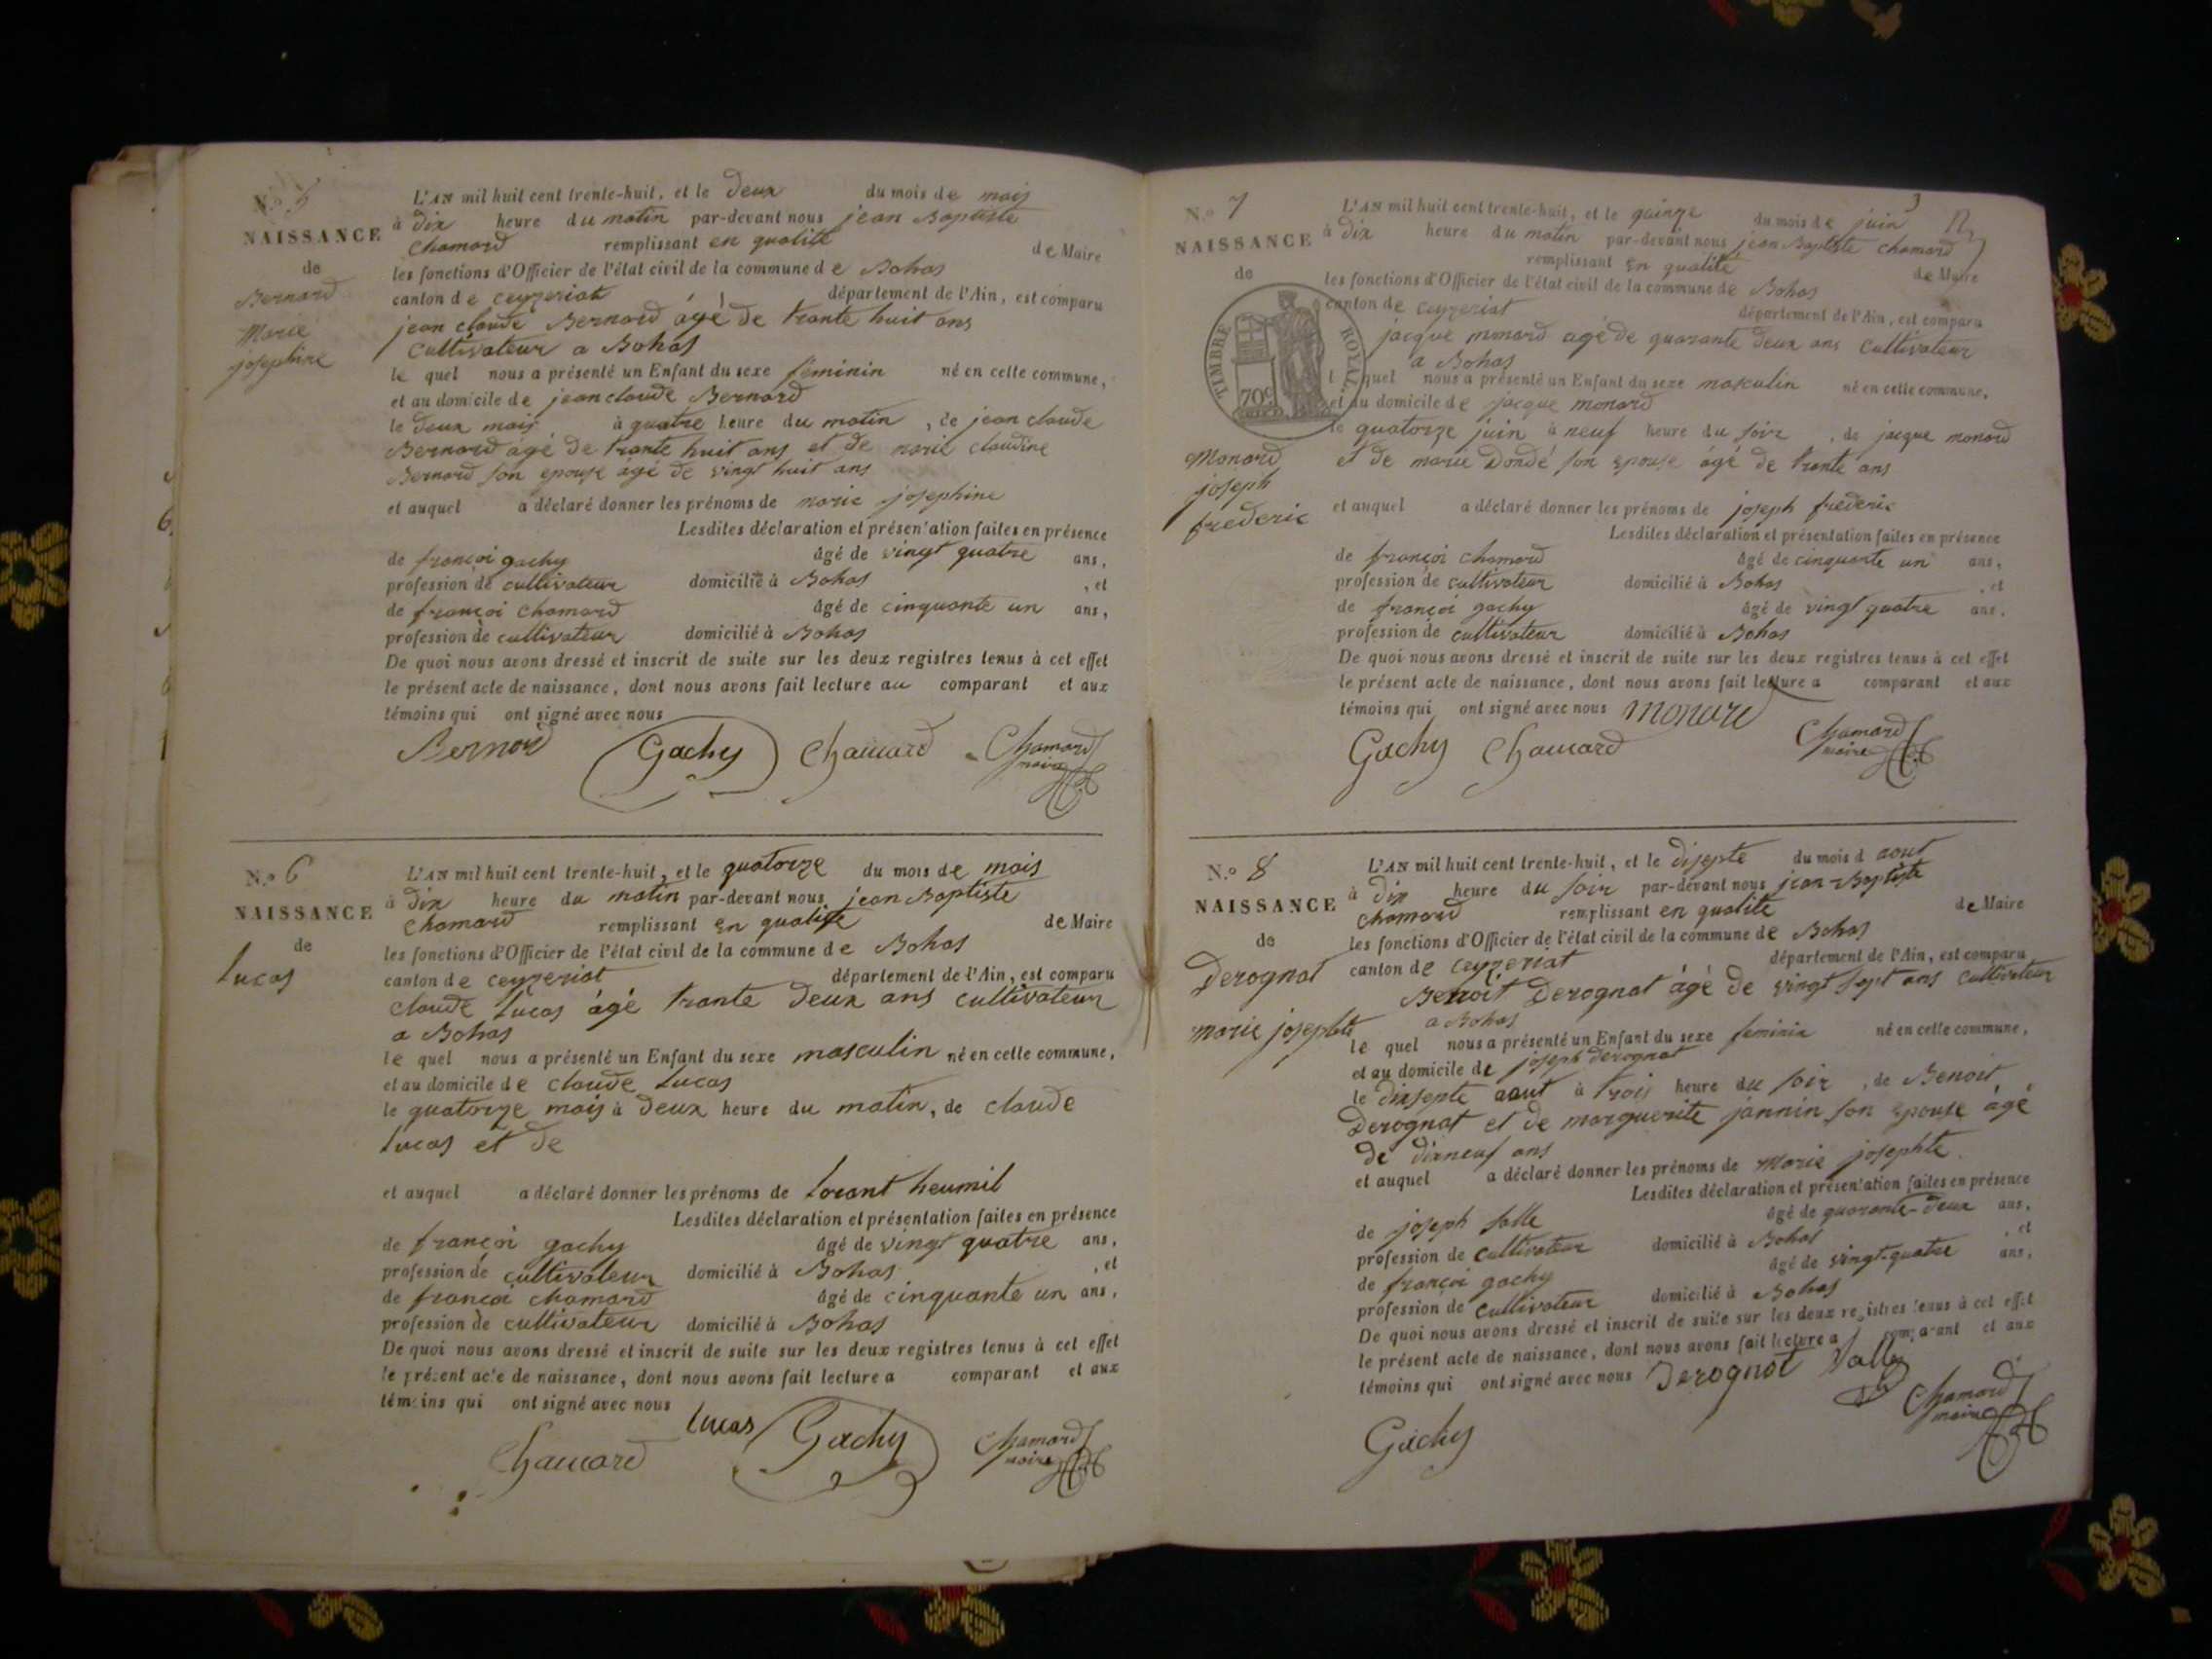 N.o 5
NAISSANCE
de
Bernard
Marie
josephine
L'AN mil huit cent trente-huit, et le deux du mois de mais
à dix heure du matin par-devant nous jean Baptiste
chamard remplissant en qualité de Maire
les fonctions d'Officier de l'état civil de la commune de Bohas
canton de ceyzeriat département de l'Ain, est comparu
jean claude Bernard âgé de trante huit ans
cultivateur a Bohas
le quel nous a présenté un Enfant du sexe féminin né en cette commune,
et au domicile de jean claude Bernard
le deux mais à quatre heure du matin, de jean claude
Bernard âgé de trante huit ans et de marie claudine
Bernard son epouse âgé de vingt huit ans
et auquel a déclaré donner les prénoms de marie josephine
Lesdites déclaration et présentation faites en présence
de françoi gachy âgé de vingt quatre ans,
profession de cultivateur domicilié à Bohas, et
de françoi chamard âgé de cinquante un ans,
profession de cultivateur domicilié à Bohas
De quoi nous avons dressé et inscrit de suite sur les deux registres tenus à cet effet
le présent acte de naissance, dont nous avons fait lecture au comparant et aux
témoins qui ont signé avec nous
Bernard Gachy Chamard Chamard
maire
N.o 6
NAISSANCE
de
Lucas
L'AN mil huit cent trente-huit, et le quatorze du mois de mais
à dix heure du matin par-devant nous jean Baptiste
chamard remplissant en qualité de Maire
les fonctions d'Officier de l'état civil de la commune de Bohas
canton de ceyzeriat département de l'Ain, est comparu
claude Lucas âgé trante deux ans cultivateur
a Bohas
le quel nous a présenté un Enfant du sexe masculin né en cette commune,
et au domicile de claude Lucas
le quatorze mais à deux heure du matin, de claude
Lucas et de
et auquel a déclaré donner les prénoms de Lorant heumil
Lesdites déclaration et présentation faites en présence
de françoi gachy âgé de vingt quatre ans,
profession de cultivateur domicilié à Bohas, et
de françoi chamard âgé de cinquante un ans,
profession de cultivateur domicilié à Bohas
De quoi nous avons dressé et inscrit de suite sur les deux registres tenus à cet effet
le présent acte de naissance, dont nous avons fait lecture a comparant et aux
témoins qui ont signé avec nous
Lucas Gachy Chamard
Chamard maire
3
N.o 7
NAISSANCE
de
TIMBRE ROYAL
70c
Monard
joseph
frederic
L'AN mil huit cent trente-huit, et le quinze du mois de juin
à dix heure du matin par-devant nous jean Baptiste chamard
remplissant en qualité de Maire
les fonctions d'Officier de l'état civil de la commune de Bohas
canton de ceyzeriat département de l'Ain, est comparu
jacque monard agé de quarante deux ans cultivateur
a Bohas
l quel nous a présenté un Enfant du sexe masculin né en cette commune,
et au domicile de jacque monard
le quatorze juin à neuf heure du soir, de jacque monard
et de marie Dondé son epouse âgé de trante ans
et auquel a déclaré donner les prénoms de joseph frederic
Lesdites déclaration et présentation faites en présence
de françoi chamard âgé de cinquante un ans,
profession de cultivateur domicilié à Bohas, et
de françoi gachy âgé de vingt quatre ans,
profession de cultivateur domicilié à Bohas
De quoi nous avons dressé et inscrit de suite sur les deux registres tenus à cet effet
le présent acte de naissance, dont nous avons fait lecture a comparant et aux
témoins qui ont signé avec nous Monard
Gachy Chamard Chamard
maire
N.o 8
NAISSANCE
de
Derognat
marie josephte
L'AN mil huit cent trente-huit, et le disepte du mois d aout
à dix heure du soir par-devant nous jean-Baptiste
chamard remplissant en qualité de Maire
les fonctions d'Officier de l'état civil de la commune de Bohas
canton de ceyzeriat département de l'Ain, est comparu
Benoit Derognat âgé de vingt sept ans cultivateur
a Bohas
le quel nous a présenté un Enfant du sexe feminin né en cette commune,
et au domicile de joseph derognat
le dixsepte aout à trois heure du soir, de Benoit
Derognat et de marguerite jannin son epouse âgé
de dixneuf ans
et auquel a déclaré donner les prénoms de Marie josephte
Lesdites déclaration et présentation faites en présence
de joseph salle âgé de quarante-deux ans,
profession de cultivateur domicilié à Bohas, et
de françoi gachy âgé de vingt-quatre ans,
profession de cultivateur domicilié à Bohas
De quoi nous avons dressé et inscrit de suite sur les deux registres tenus à cet effet
le présent acte de naissance, dont nous avons fait lecture a comparant et aux
témoins qui ont signé avec nous Derognat Salle
Chamard
maire
Gachy